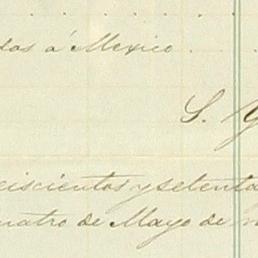 á Mexico
S.
seiscientos y setenta
cuatro de Mayo de